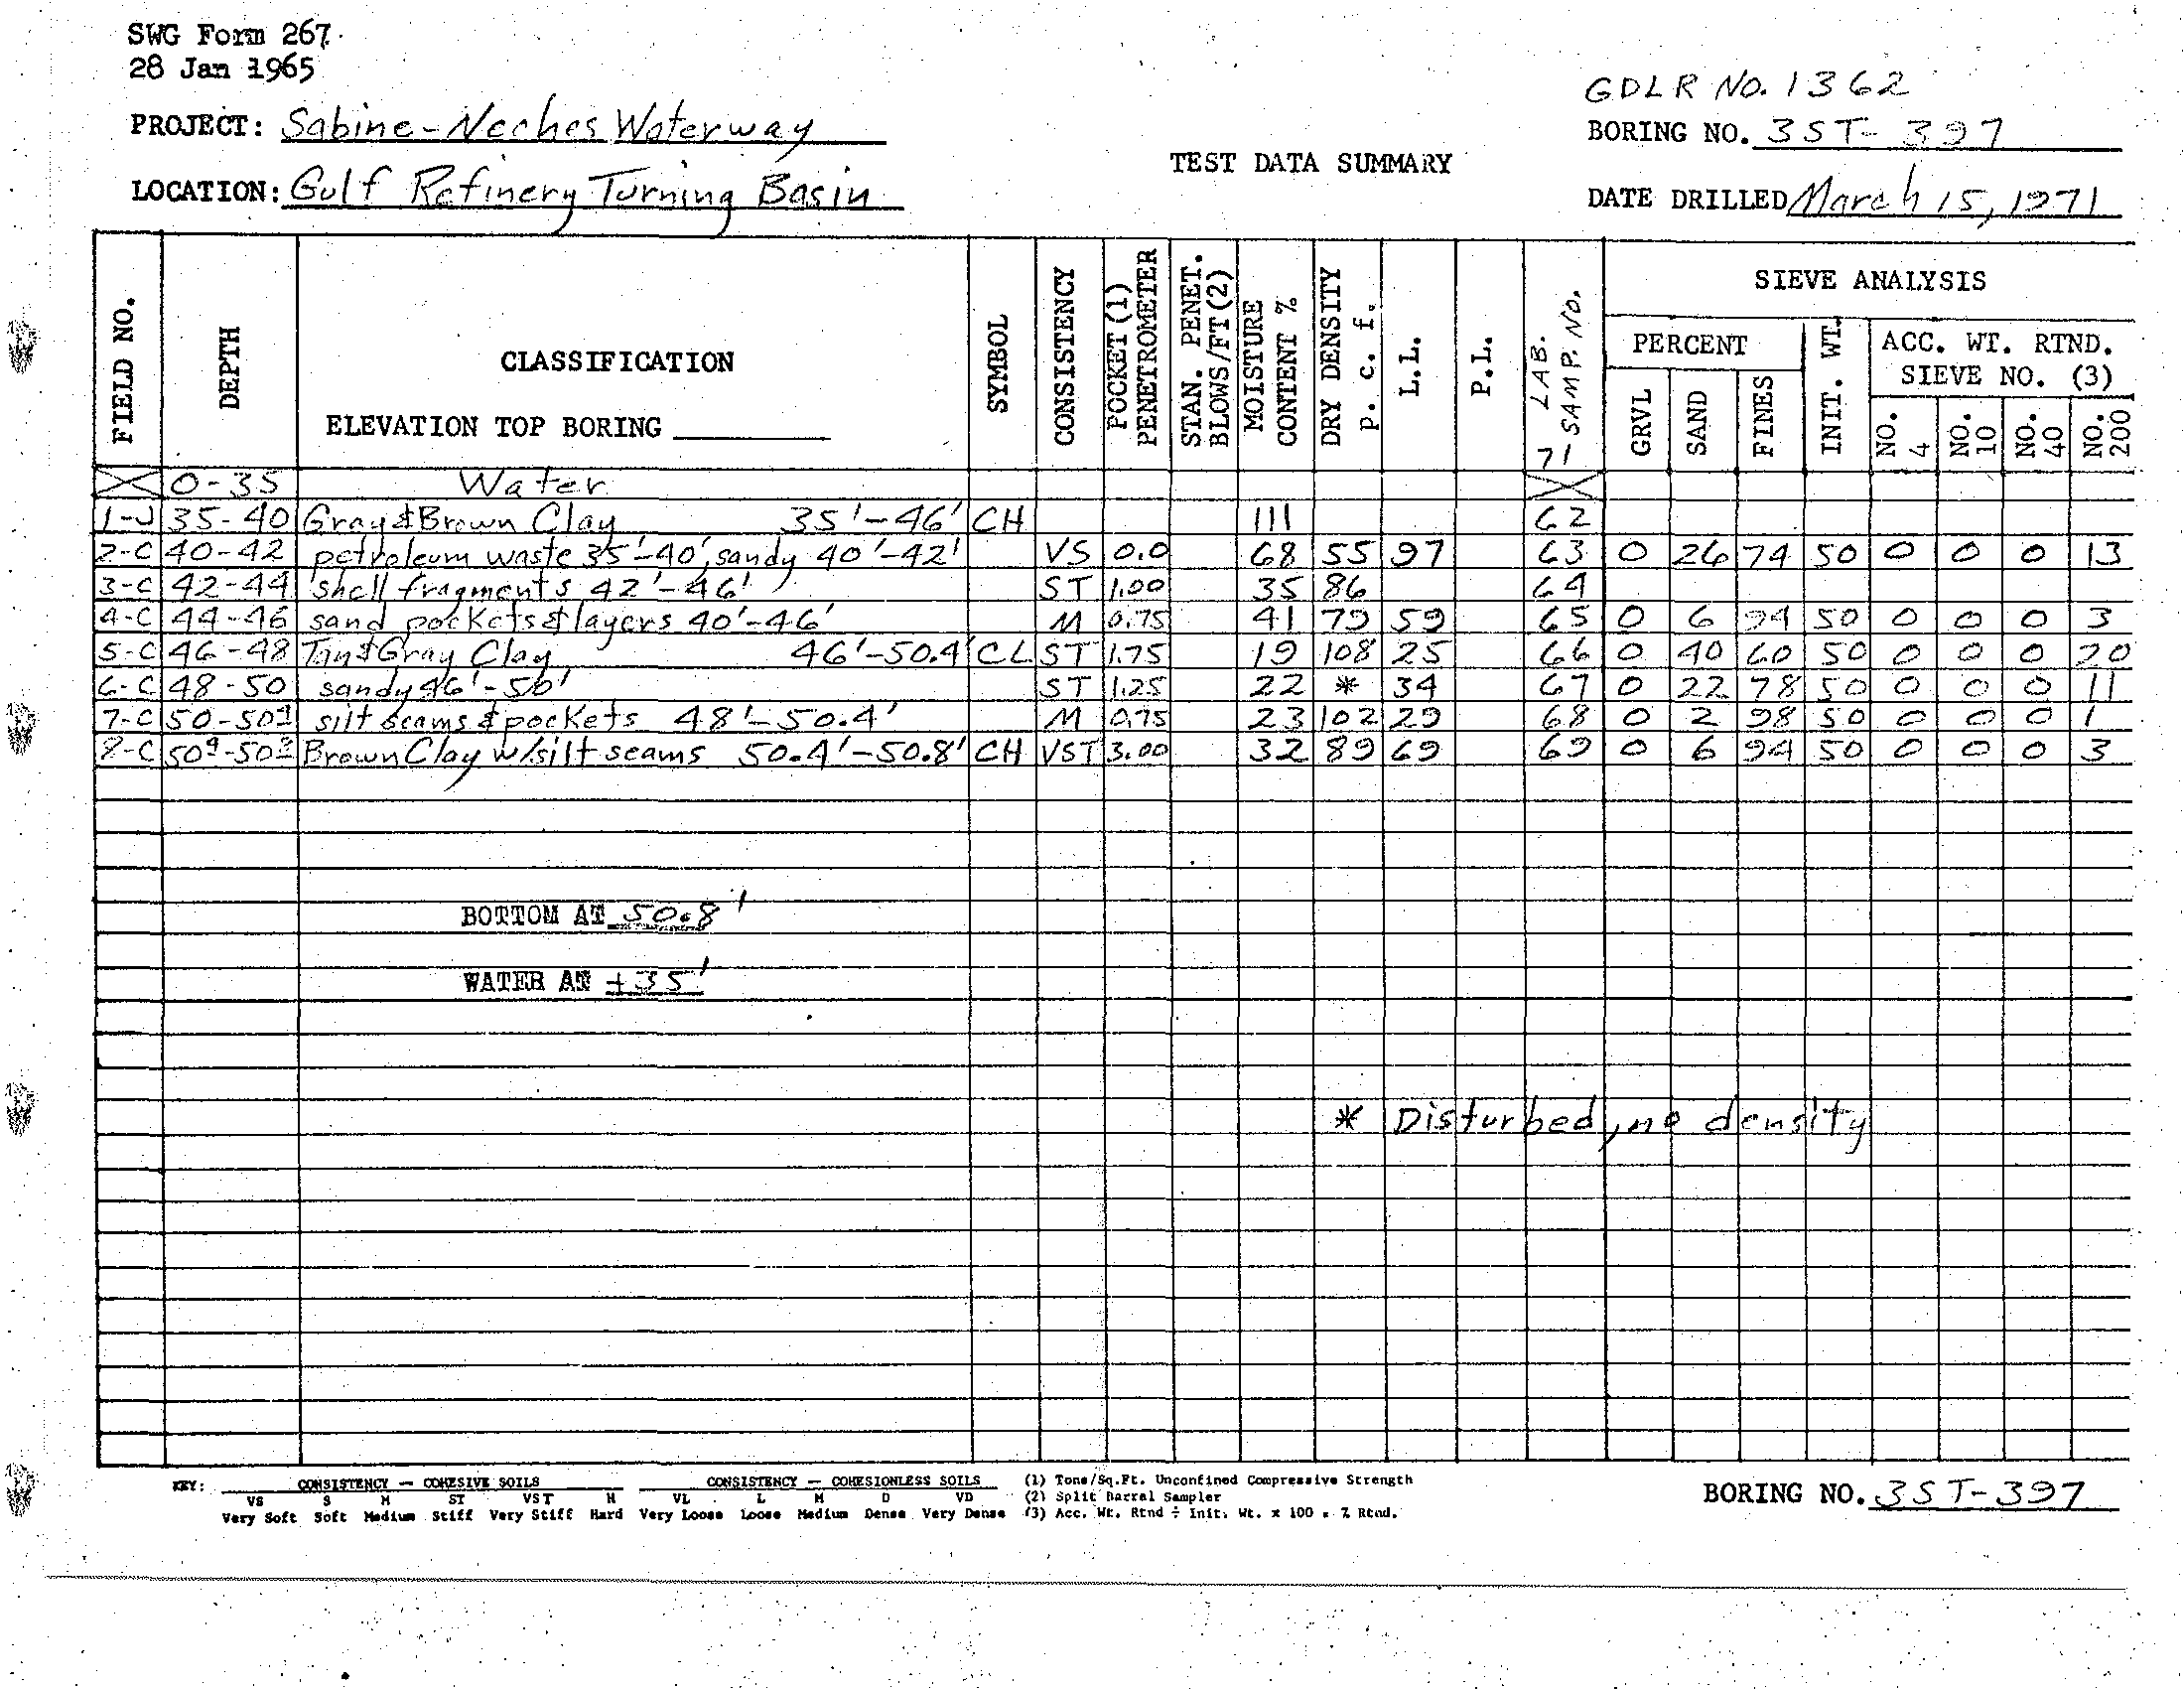 SWG Form 267
28 Jan 1965
GDLR NO. 1362
PROJECT: Sabine-Neches Waterway
BORING NO. 3ST-397
TEST DATA SUMMARY
LOCATION: Gulf Refinery Turning Basin
DATE DRILLED March 15, 1971
FIELD NO.
DEPTH
CLASSIFICATION
ELEVATION TOP BORING
SYMBOL
CONSISTENCY
POCKET (1) PENETROMETER
STAN. PENET. BLOWS/FT (2)
MOISTURE CONTENT %
DRY DENSITY p. c. f.
L.L.
P.L.
LAB. SAMP. NO.
71-
SIEVE ANALYSIS
PERCENT
GRVL
SAND
FINES
INIT. WT.
ACC. WT. RTND.
SIEVE NO. (3)
NO. 4
NO. 10
NO. 40
NO. 200
0-35 Water
1-J 35-40 Gray & Brown Clay 35'-46' CH 111 62
2-C 40-42 petroleum waste 35'-40', sandy 40'-42' VS 0.0 68 55 97 63 0 26 74 50 0 0 0 13
3-C 42-44 shell fragments 42'-46' ST 1.00 35 86 64
4-C 44-46 sand pockets & layers 40'-46' M 0.75 41 79 59 65 0 6 94 50 0 0 0 3
5-C 46-48 Tan & Gray Clay, 46'-50.4' CL ST 1.75 19 108 25 66 0 40 60 50 0 0 0 20
6-C 48-50 sandy 46'-50' ST 1.25 22 * 34 67 0 22 78 50 0 0 0 11
7-C 50-50⁴ silt seams & pockets 48'-50.4' M 0.75 23 102 29 68 0 2 98 50 0 0 0 1
8-C 50⁴-50⁸ Brown Clay w/silt seams 50.4'-50.8' CH VST 3.00 32 89 69 69 0 6 94 50 0 0 0 3
BOTTOM AT 50.8'
WATER AT +35'
* Disturbed, no density
KEY: CONSISTENCY - COHESIVE SOILS
VS S M ST VST H
Very Soft Soft Medium Stiff Very Stiff Hard
CONSISTENCY - COHESIONLESS SOILS
VL L M D VD
Very Loose Loose Medium Dense Very Dense
(1) Tons/Sq.Ft. Unconfined Compressive Strength
(2) Split Barrel Sampler
(3) Acc. Wt. Rtnd ÷ Init. Wt. x 100 = % Rtnd.
BORING NO. 3ST-397